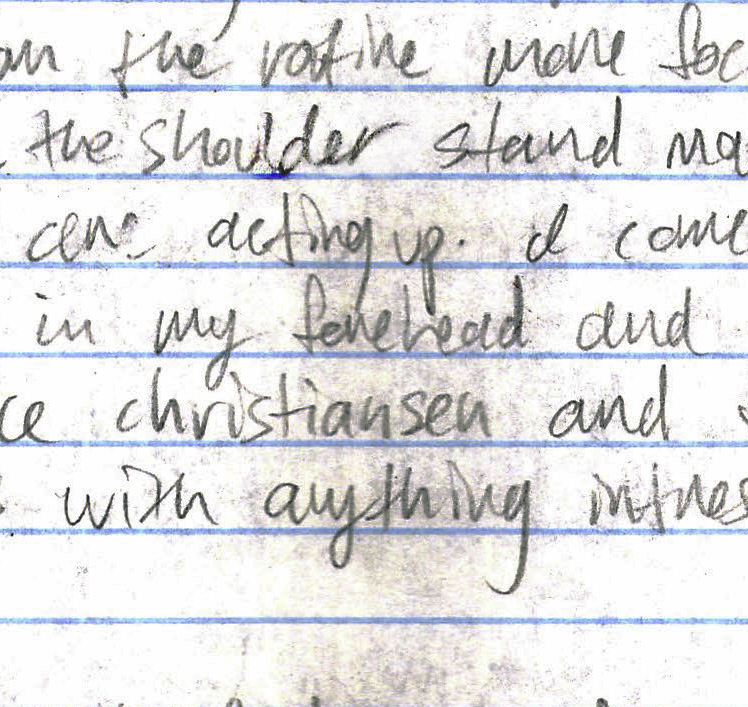 the rotine more foc
the shoulder stand ma
acting up. I come
in my forehead and
ce christiansen and
with anything intres